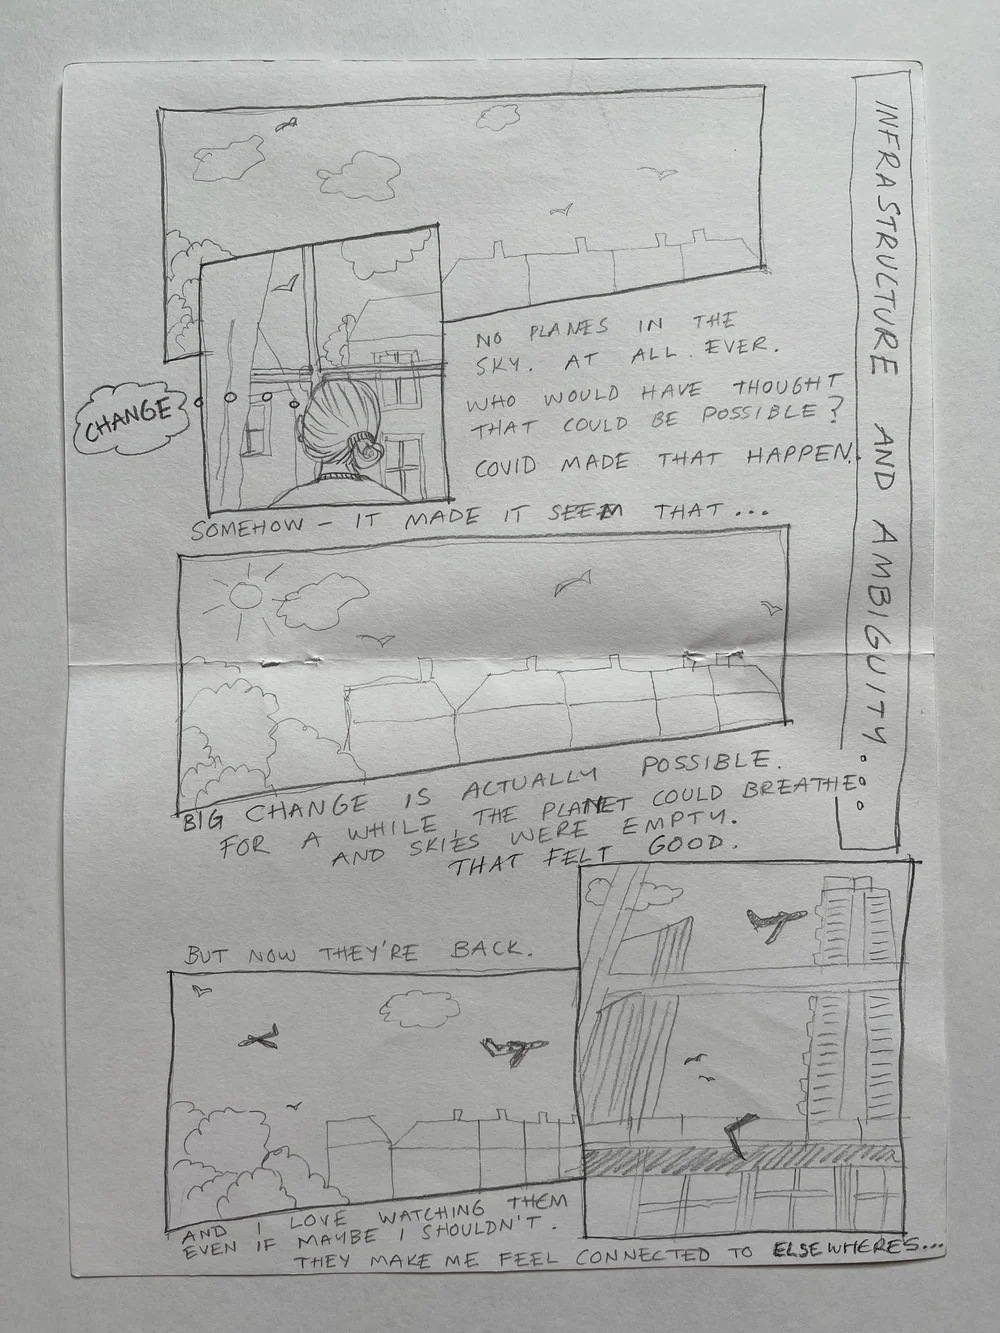 INFRASTRUCTURE AND AMBIGUITY...
NO PLANES IN THE
SKY. AT ALL. EVER.
WHO WOULD HAVE THOUGHT
THAT COULD BE POSSIBLE?
COVID MADE THAT HAPPEN.
CHANGE
SOMEHOW - IT MADE IT SEEM THAT...
BIG CHANGE IS ACTUALLY POSSIBLE.
FOR A WHILE, THE PLANET COULD BREATHE
AND SKIES WERE EMPTY.
THAT FELT GOOD.
BUT NOW THEY'RE BACK.
AND I LOVE WATCHING THEM
EVEN IF MAYBE I SHOULDN'T.
THEY MAKE ME FEEL CONNECTED TO ELSEWHERE'S...